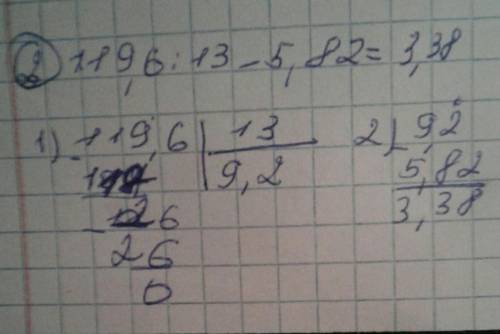 2 119,6 : 13 - 5,82 = 3,38
1) 119,6 | 13
9,2
- 26
26
0
2) 9,2
5,82
3,38